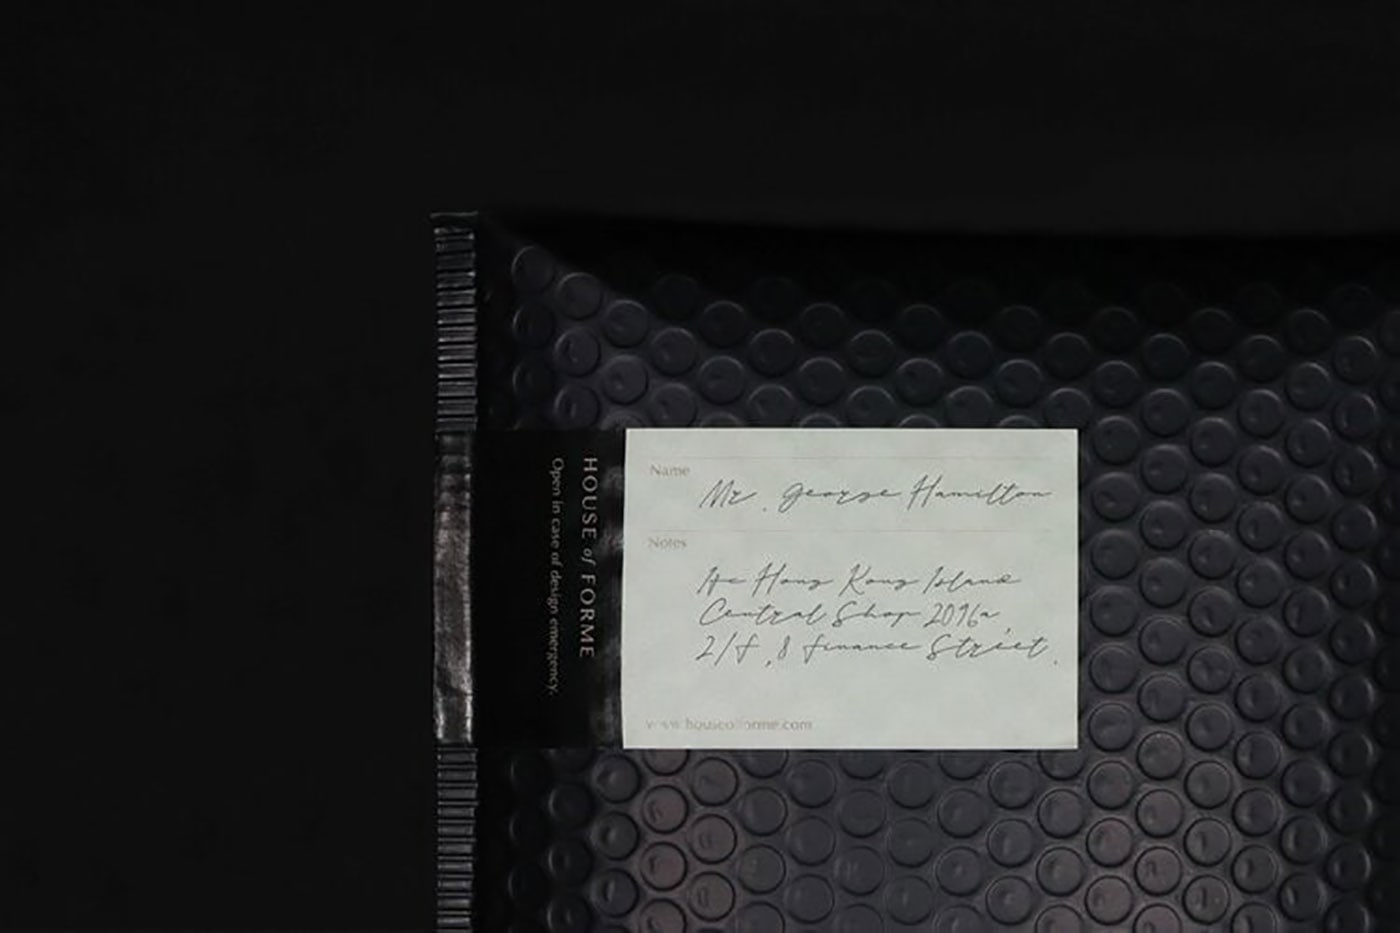 HOUSE of FORME
Open in case of design emergency.
Name
Mr. George Hamilton
Notes
Hong Kong Island
Central Shop 2096a
2/f, 8 finance Street.
www.houseofforme.com